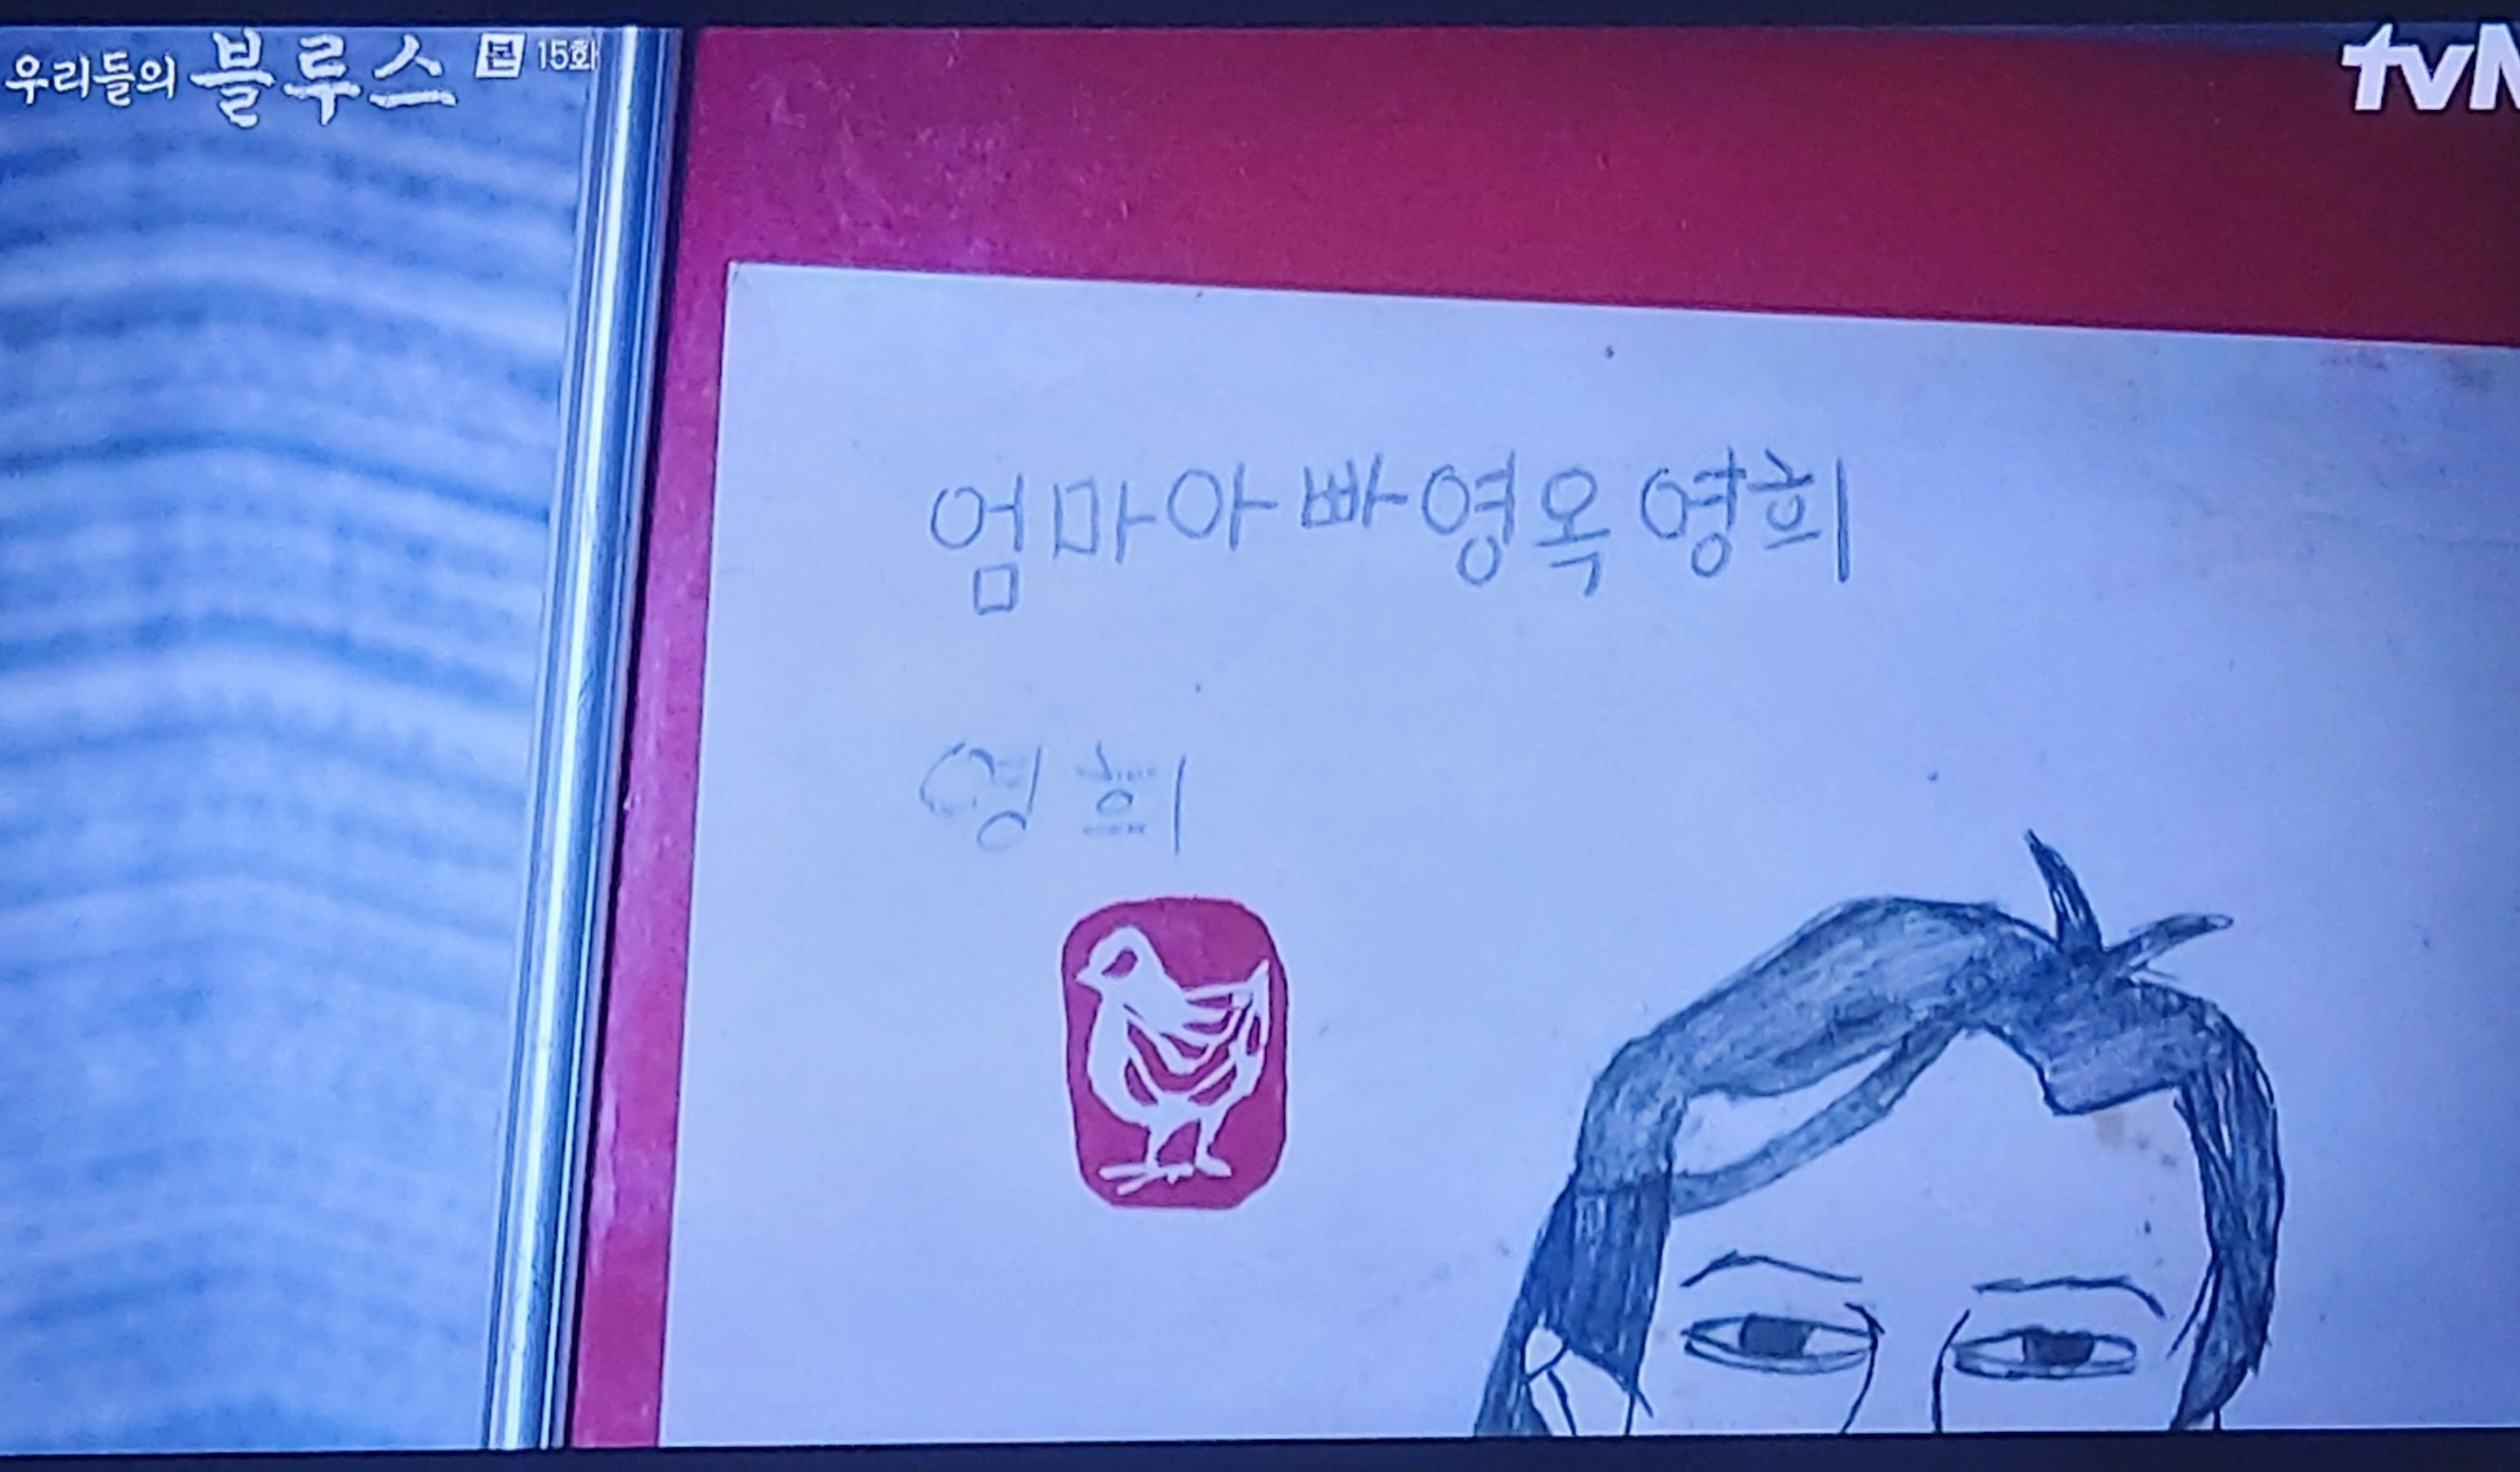 우리들의 블루스 본 15화
tvN
엄마아빠영옥영희
영희